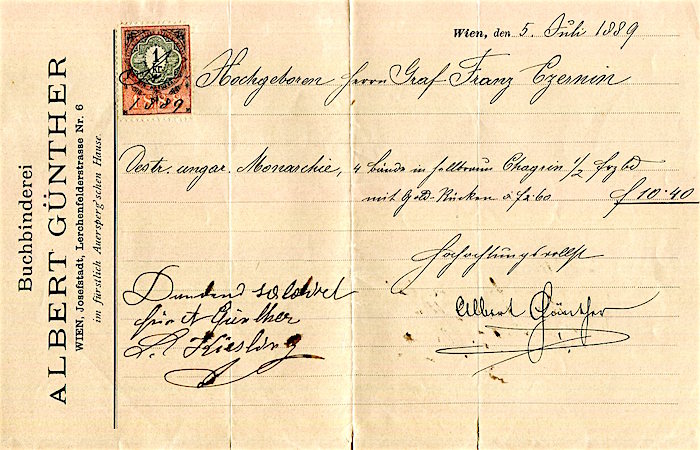 Buchbinderei
ALBERT GÜNTHER
WIEN, Josefstadt, Lerchenfelderstrasse Nr. 6
im fürstlich Auersperg'schen Hause.
Wien, den 5. Juli 1889
1
Kr.
1889
Hochgeboren Herrn Graf Franz Czernin
Oestr. ungar. Monarchie, 4 Bände in hellbraun Chagrin 1/2 frzbd
mit Gold-Rücken à f 2.60 f 10.40
Hochachtungsvollst
Albert Günther
Dankend saldirt
für A Günther